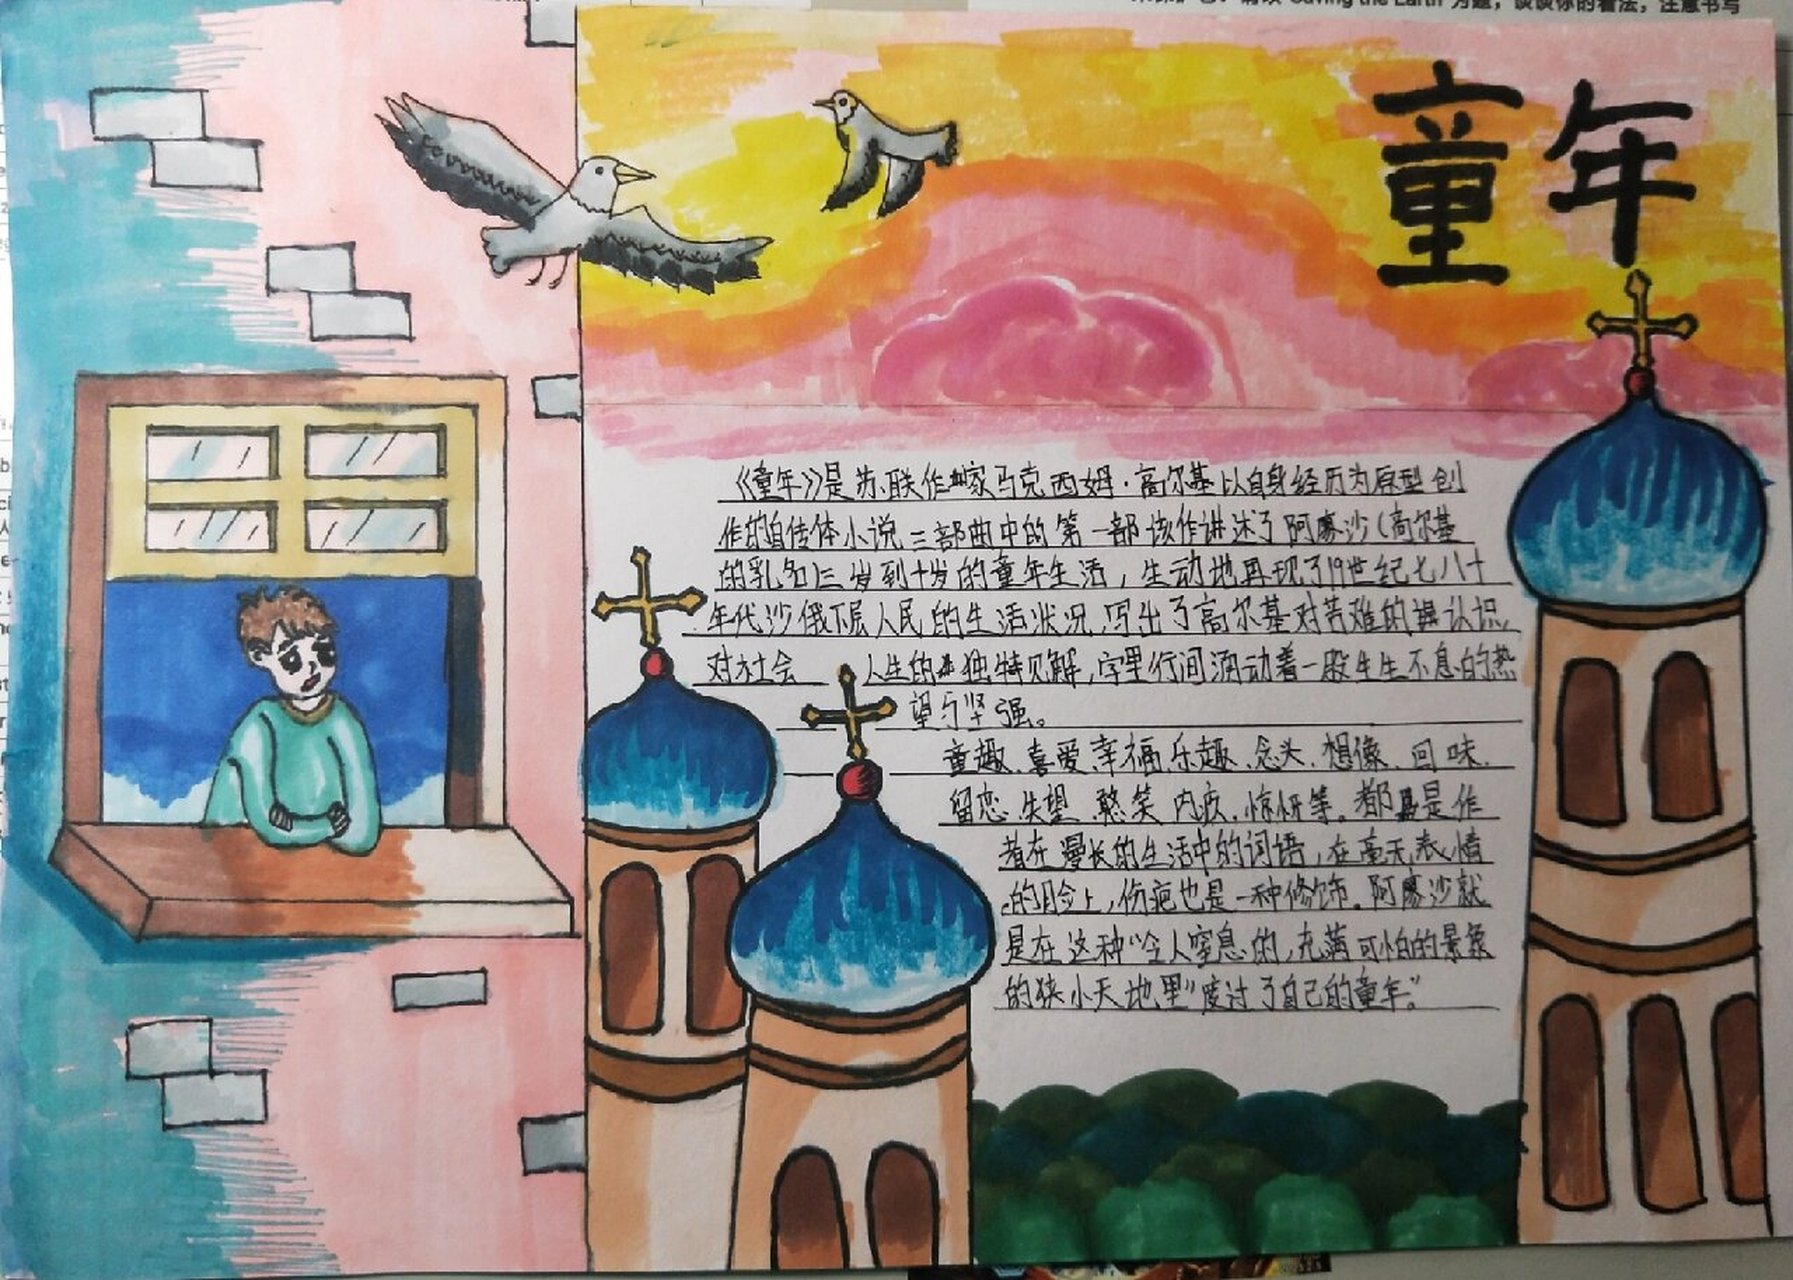 童年
《童年》是苏联作家马克西姆·高尔基以自身经历为原型创
作的自传体小说三部曲中的第一部该作讲述了阿廖沙(高尔基
的乳名)三岁到十岁的童年生活，生动地再现了19世纪七八十
年代沙俄下层人民的生活状况,写出了高尔基对苦难的认识,
对社会 人生的独特见解,字里行间涌动着一股生生不息的热
望与坚强。
童趣、喜爱、幸福、乐趣、念头、想像、回味、
留恋、失望、憨笑、内疚、惊讶等。都是作
者在漫长的生活中的词语,在毫无表情
的脸上,伤疤也是一种修饰。阿廖沙就
是在这种"令人窒息的,充满可怕的景象
的狭小天地里"度过了自己的童年。"